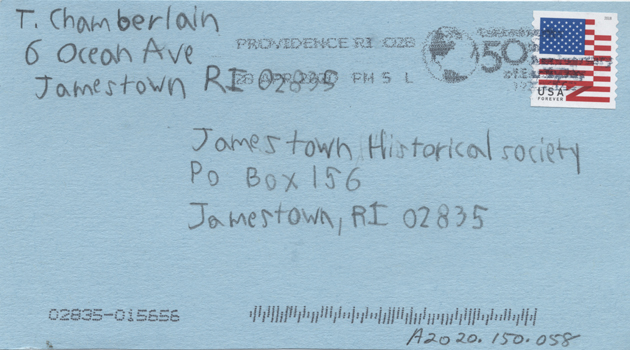 T. Chamberlain
6 Ocean Ave
Jamestown RI 02835
PROVIDENCE RI 028
28 APR 2020 PM 5 L
50
USA
FOREVER
Jamestown Historical society
PO Box 156
Jamestown, RI 02835
02835-015656
A2020.150.058